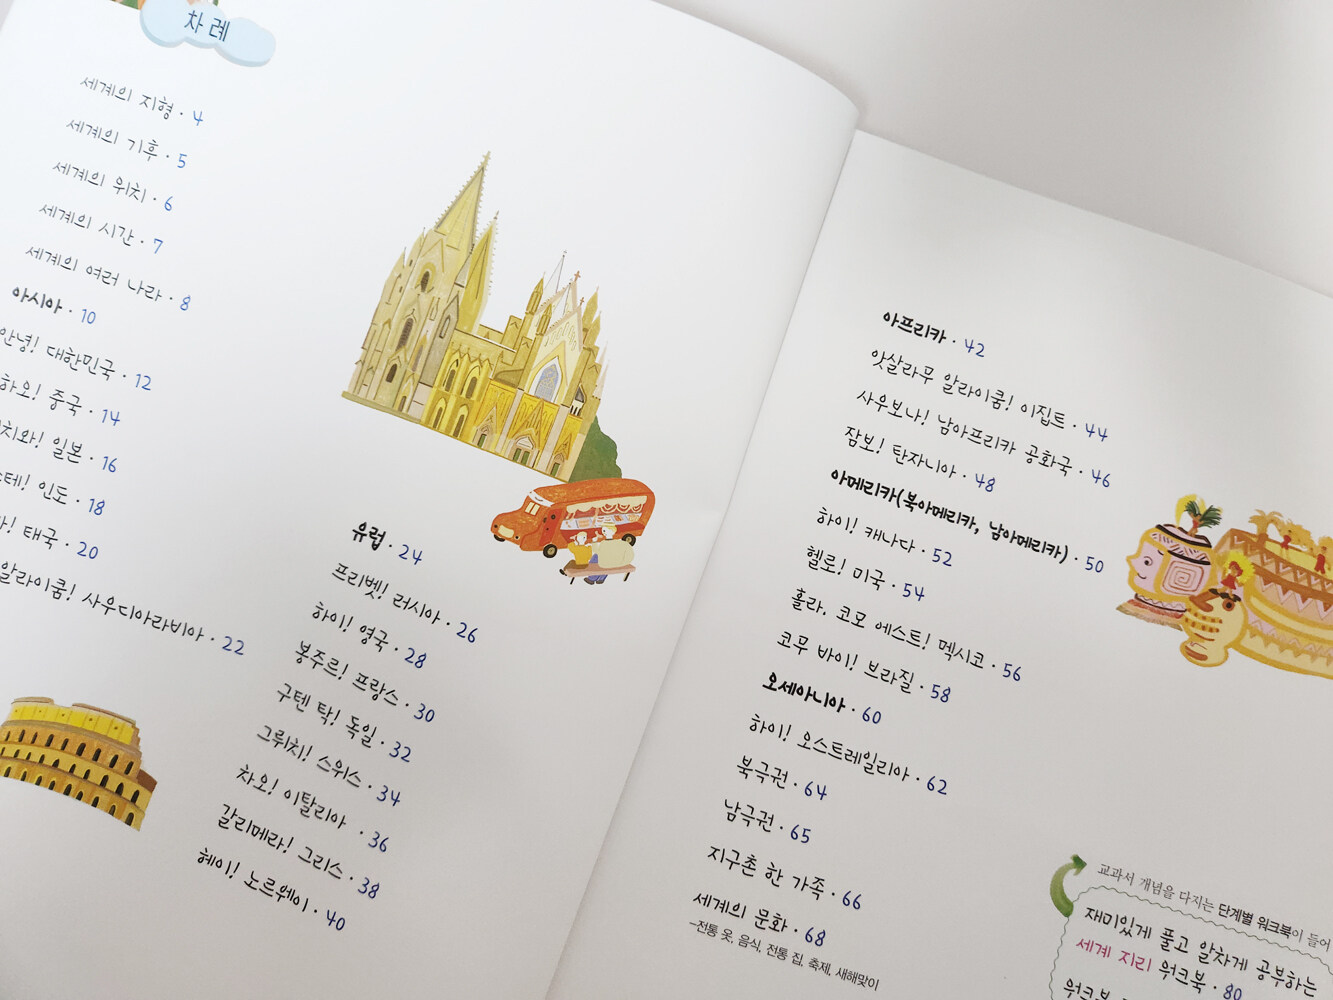 차례
세계의 지형 · 4
세계의 기후 · 5
세계의 위치 · 6
세계의 시간 · 7
세계의 여러 나라 · 8
아시아 · 10
안녕! 대한민국 · 12
하오! 중국 · 14
치와! 일본 · 16
스테! 인도 · 18
태국 · 20
알라이쿰! 사우디아라비아 · 22
유럽 · 24
프리벳! 러시아 · 26
하이! 영국 · 28
봉주르! 프랑스 · 30
구텐 탁! 독일 · 32
그뤼치! 스위스 · 34
차오! 이탈리아 · 36
칼리메라! 그리스 · 38
헤이! 노르웨이 · 40
아프리카 · 42
앗살라무 알라이쿰! 이집트 · 44
사우보나! 남아프리카 공화국 · 46
잠보! 탄자니아 · 48
아메리카(북아메리카, 남아메리카) · 50
하이! 캐나다 · 52
헬로! 미국 · 54
홀라, 코모 에스트! 멕시코 · 56
코무 바이! 브라질 · 58
오세아니아 · 60
하이! 오스트레일리아 · 62
북극권 · 64
남극권 · 65
지구촌 한 가족 · 66
세계의 문화 · 68
-전통 옷, 음식, 전통 집, 축제, 새해맞이
교과서 개념을 다지는 단계별 워크북이 들어
재미있게 풀고 알차게 공부하는
세계 지리 워크북 · 80
워크북